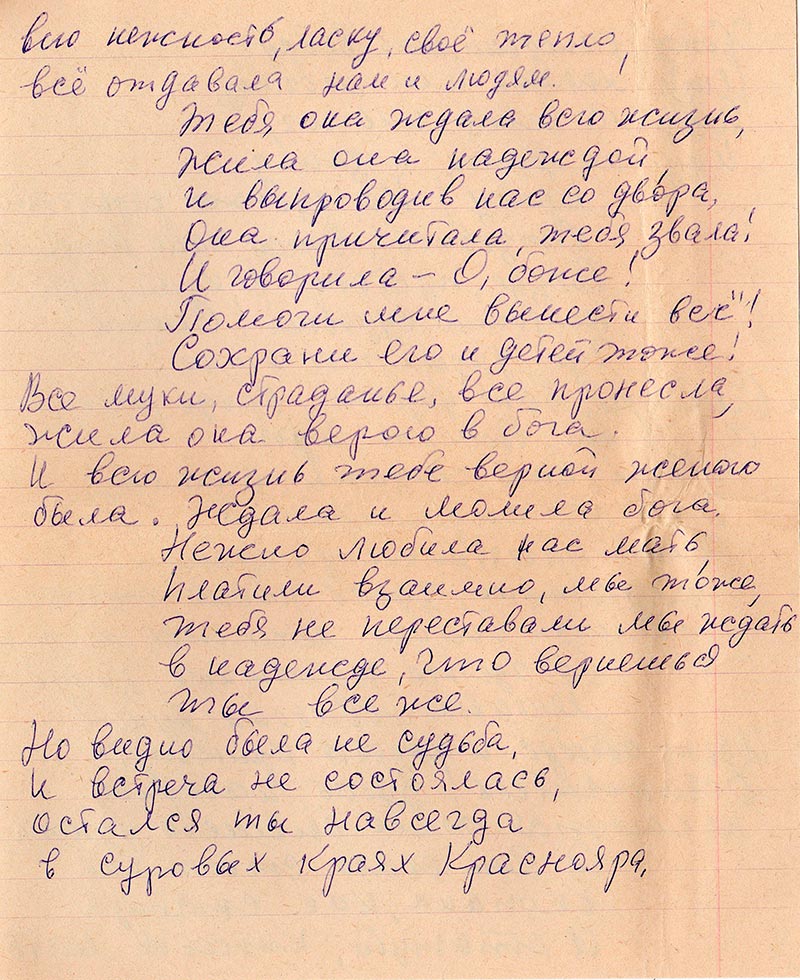 всю нежность, ласку, своё тепло,
всё отдавала нам и людям.
Тебя она ждала всю жизнь,
жила она надеждой,
и выпроводив нас со двора,
Она причитала, тебя звала!
И говорила – О, боже!
Помоги мне вынести всё"!
Сохрани его и детей тоже!
Все муки, страданье, все пронесла,
жила она верою в бога.
И всю жизнь тебе верной женою
была. Ждала и молила бога.
Нежно любила нас мать,
платили взаимно, мы тоже,
тебя не переставали мы ждать
в надежде, что вернешься
ты все же.
Но видно была не судьба,
и встреча не состоялась,
остался ты навсегда
в суровых краях Краснояра,